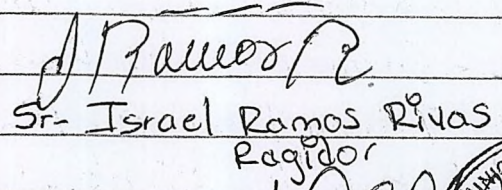 Ramos R.
Sr- Israel Ramos Rivas
Regidor